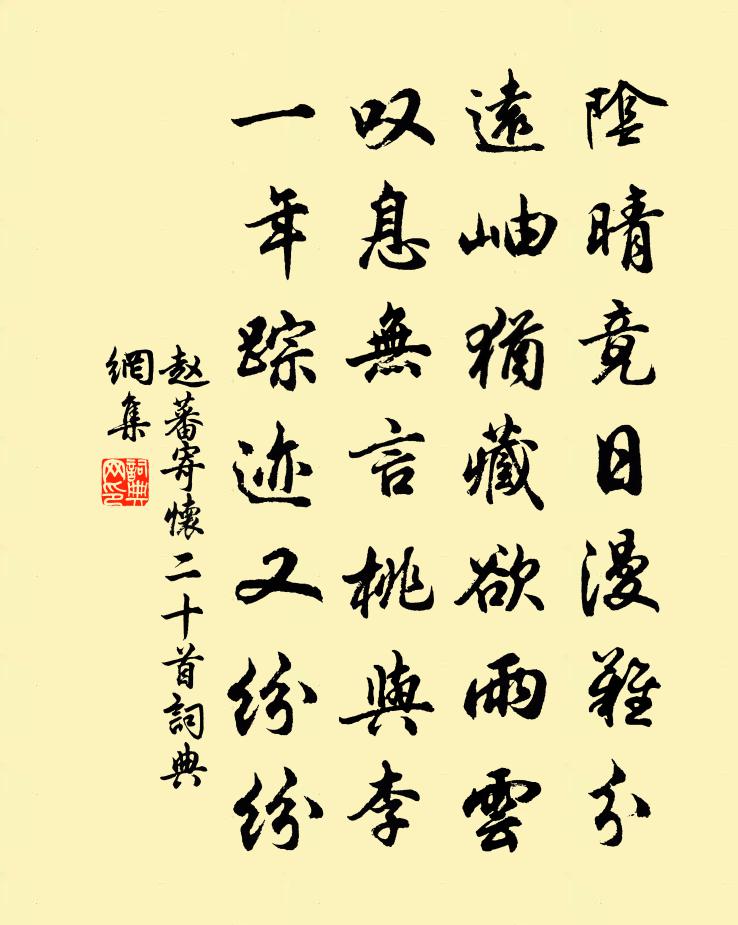 陰晴竟日漫難分
遠岫猶藏欲雨雲
叹息無言桃與李
一年踪迹又紛紛
赵蕃寄懷二十首詞典
網集
詞典
网印